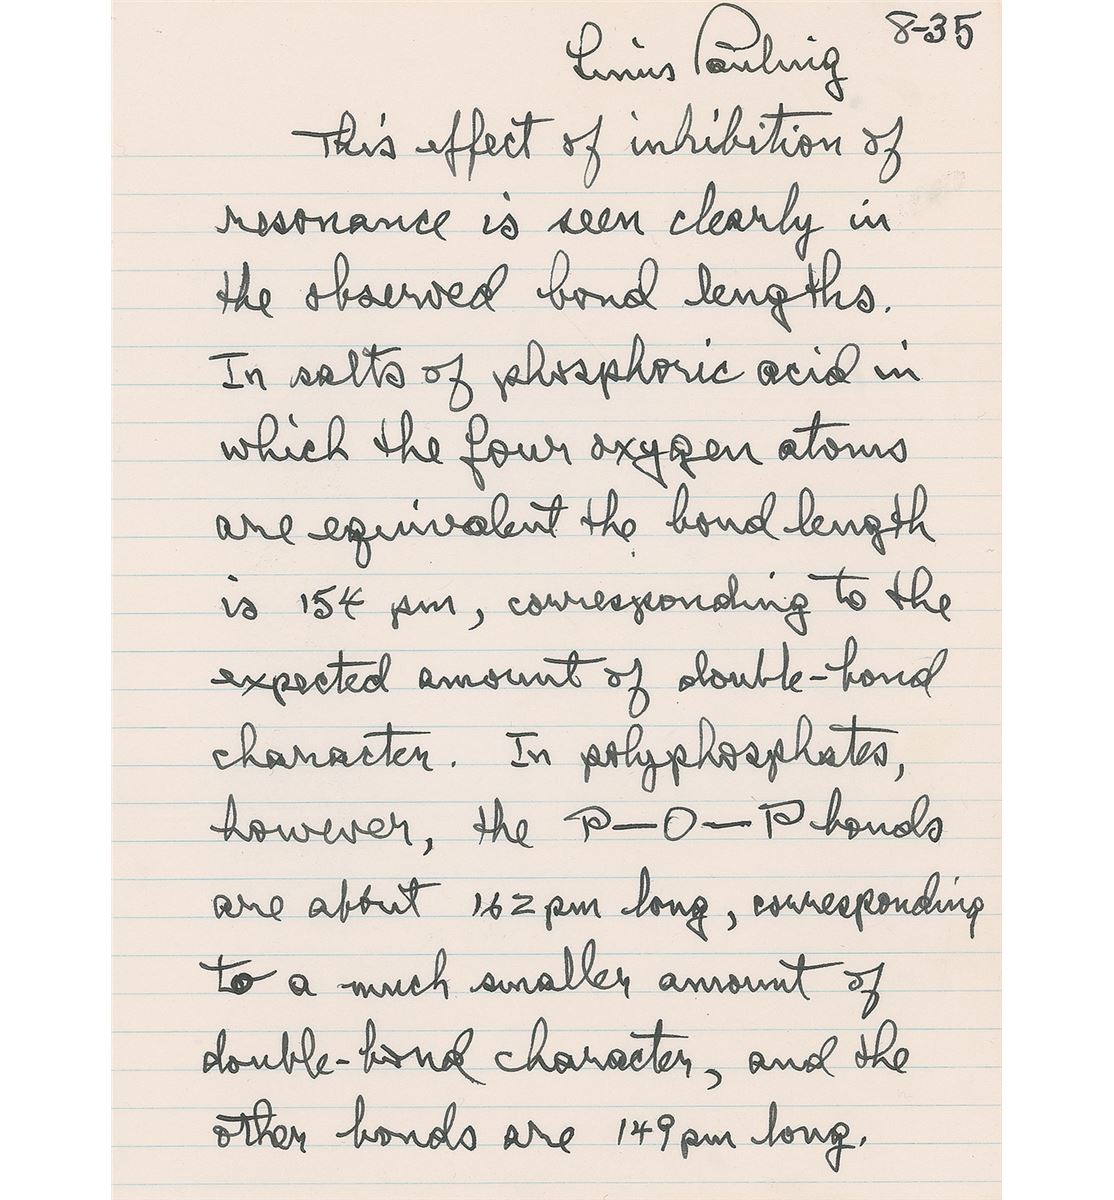 8-35
Linus Pauling
This effect of inhibition of
resonance is seen clearly in
the observed bond lengths.
In salts of phosphoric acid in
which the four oxygen atoms
are equivalent the bond length
is 154 pm, corresponding to the
expected amount of double-bond
character. In polyphosphates,
however, the P—O—P bonds
are about 162 pm long, corresponding
to a much smaller amount of
double-bond character, and the
other bonds are 149 pm long.